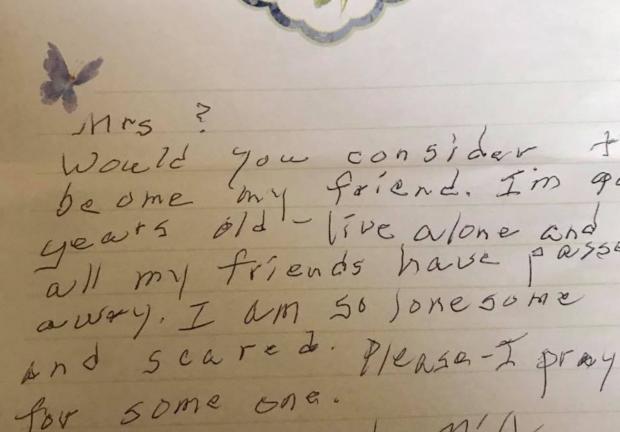 Mrs ?
Would you consider
be ome my friend. I'm
years old - live alone and
all my friends have passe
away. I am so lonesome
and scared. Please - I pray
for some one.